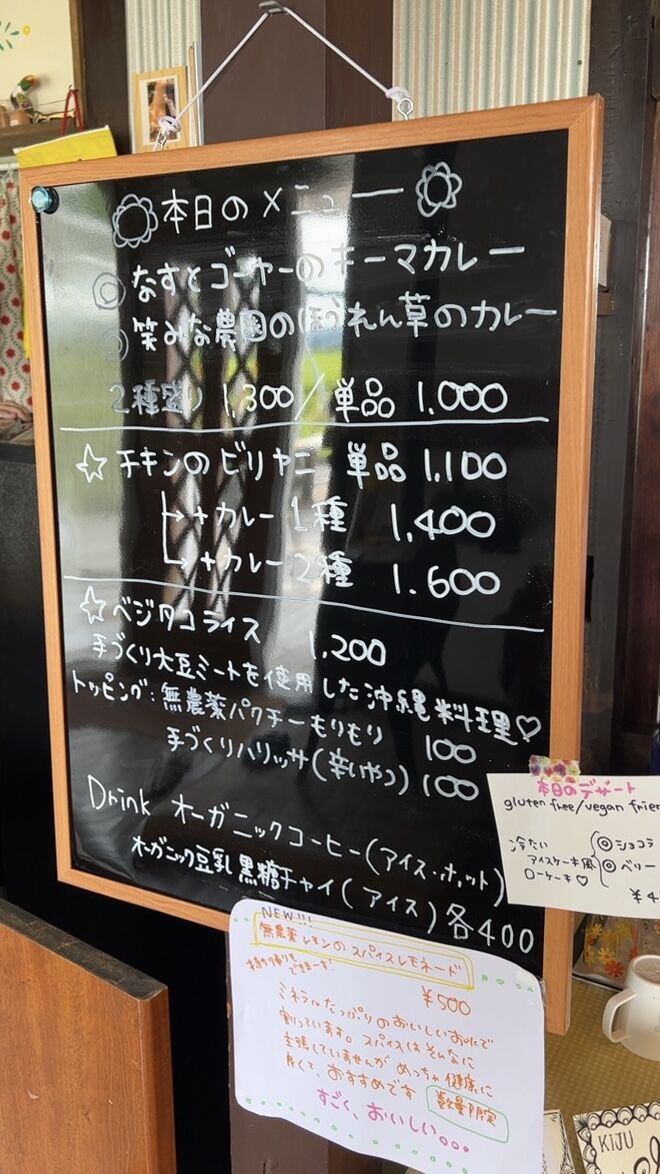 本日のメニュー
◎ なすとゴーヤーのキーマカレー
◎ 笑みな農園のほうれん草のカレー
2種盛り 1,300 / 単品 1.000
☆ チキンのビリヤニ 単品 1,100
→+カレー 1種 1,400
→+カレー 2種 1.600
☆ベジタコライス 1,200
手づくり大豆ミートを使用した沖縄料理♡
トッピング:無農薬パクチーもりもり 100
手づくりハリッサ(辛いやつ) 100
Drink オーガニックコーヒー(アイス・ホット)
オーガニック豆乳黒糖チャイ(アイス) 各400
本日のデザート
gluten free/vegan
冷たい
アイスケーキ風
ローケーキ♡
◎ショコラ
◎ベリー
NEW!!!
無農薬レモンのスパイスレモネード
持ち帰りもできまーす!
¥500
ミネラルたっぷりのおいしいお水で
割っています。スパイスはそんなに
主張していませんがめっちゃ健康に
良くて、おすすめです
数量限定
すごく、おいしい。。。
KIJU